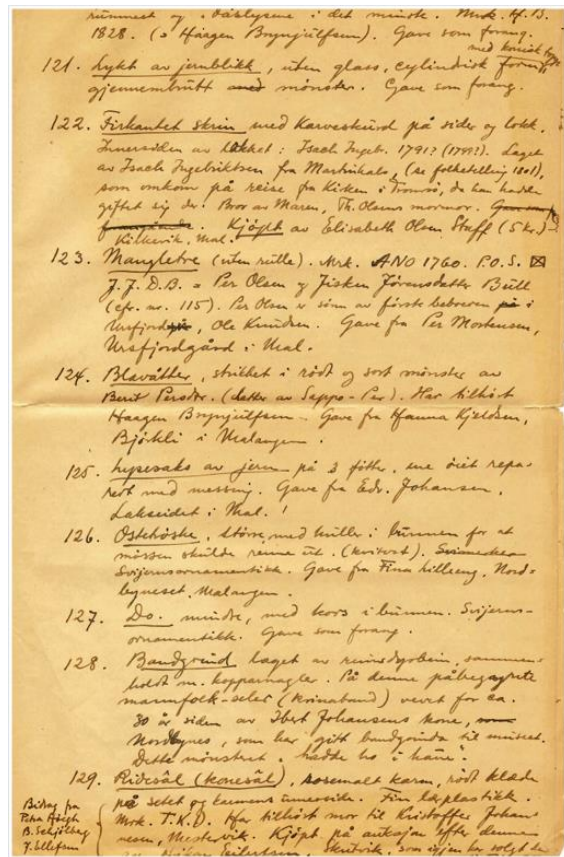 rummest og i det minste. Mrk. H. B.
1828. (= Haagen Brynjulfsen). Gave som forang.
med konisk
121. Lykt av jernblikk, uten glass, cylindrisk
gjennembrutt med mönster. Gave som forang.
122. Firkantet skrin med Karveskurd på sider og lokk.
Innersiden av lokket: Isach Ingebr. 1791? (1799?). Laget
av Isach Ingebriktsen fra Martinhals, (se folketelling 1801),
som omkom på reise fra Kirken i Tromsö, da han hadde
giftet sig der. Bror av Maren, Th. Olsens mormor. Gave som
forangående. Kjöpt av Elisabeth Olsen Staff (5 kr.)
Kilkevik, Mal.
123. Mangletre (uten rulle). Mrk. ANO 1760. P.O.S.
J. J. D. B. = Per Olsen og Jisken Jörensdatter Bull
(cfr. nr. 115). Per Olsen er sönn av förste beboeren på i
Ursfjord, Ole Knudsen. Gave fra Per Mortensen,
Ursfjordgård i Mal.
124. Blåvåtter, strikket i rödt og sort mönster av
Berit Persdtr. (datter av Sappo-Per). Har tilhört
Haagen Brynjulfsen. Gave fra Hanna Kjeldsen,
Björkli i Malangen.
125. Lysesaks av jern på 3 fötter, ene öiet repa-
rert med messing. Gave fra Edv. Johansen,
Lakseidet i Mal.
126. Ostehöske, större, med huller i bunnen for at
mössen skulde renne ut. (kvitost).
Svijernsornamentikk. Gave fra Fina Lilleeng, Nord-
byneset, Malangen.
127. Do. mindre, med kors i bunnen. Svijerns-
ornamentikk. Gave som forang.
128. Bandgrind laget av reinsdyrbein, sammen-
holdt m. koppernagler. På denne påbegynte
mannfolk-seler (kvinaband) vevet for ca.
30 år siden av Ibert Johansens kone,
Nordbynes, som har gitt bandgrinda til museet.
Dette mönstret "hadde ho i håue".
129. Ridesål (konesål), rosemalt karm, rödt klæde
på setet og karmens innerside. Fin lærplastikk.
Mrk. T.K.D. Har tilhört mor til Kristoffer Johan-
nesen, Mestervik. Kjöpt på auksjon efter dennes
av Eilertsen, Skutvik, som igjen har solgt den
Bidrag fra
Petra
B. Schjölberg
J. Ellefsen